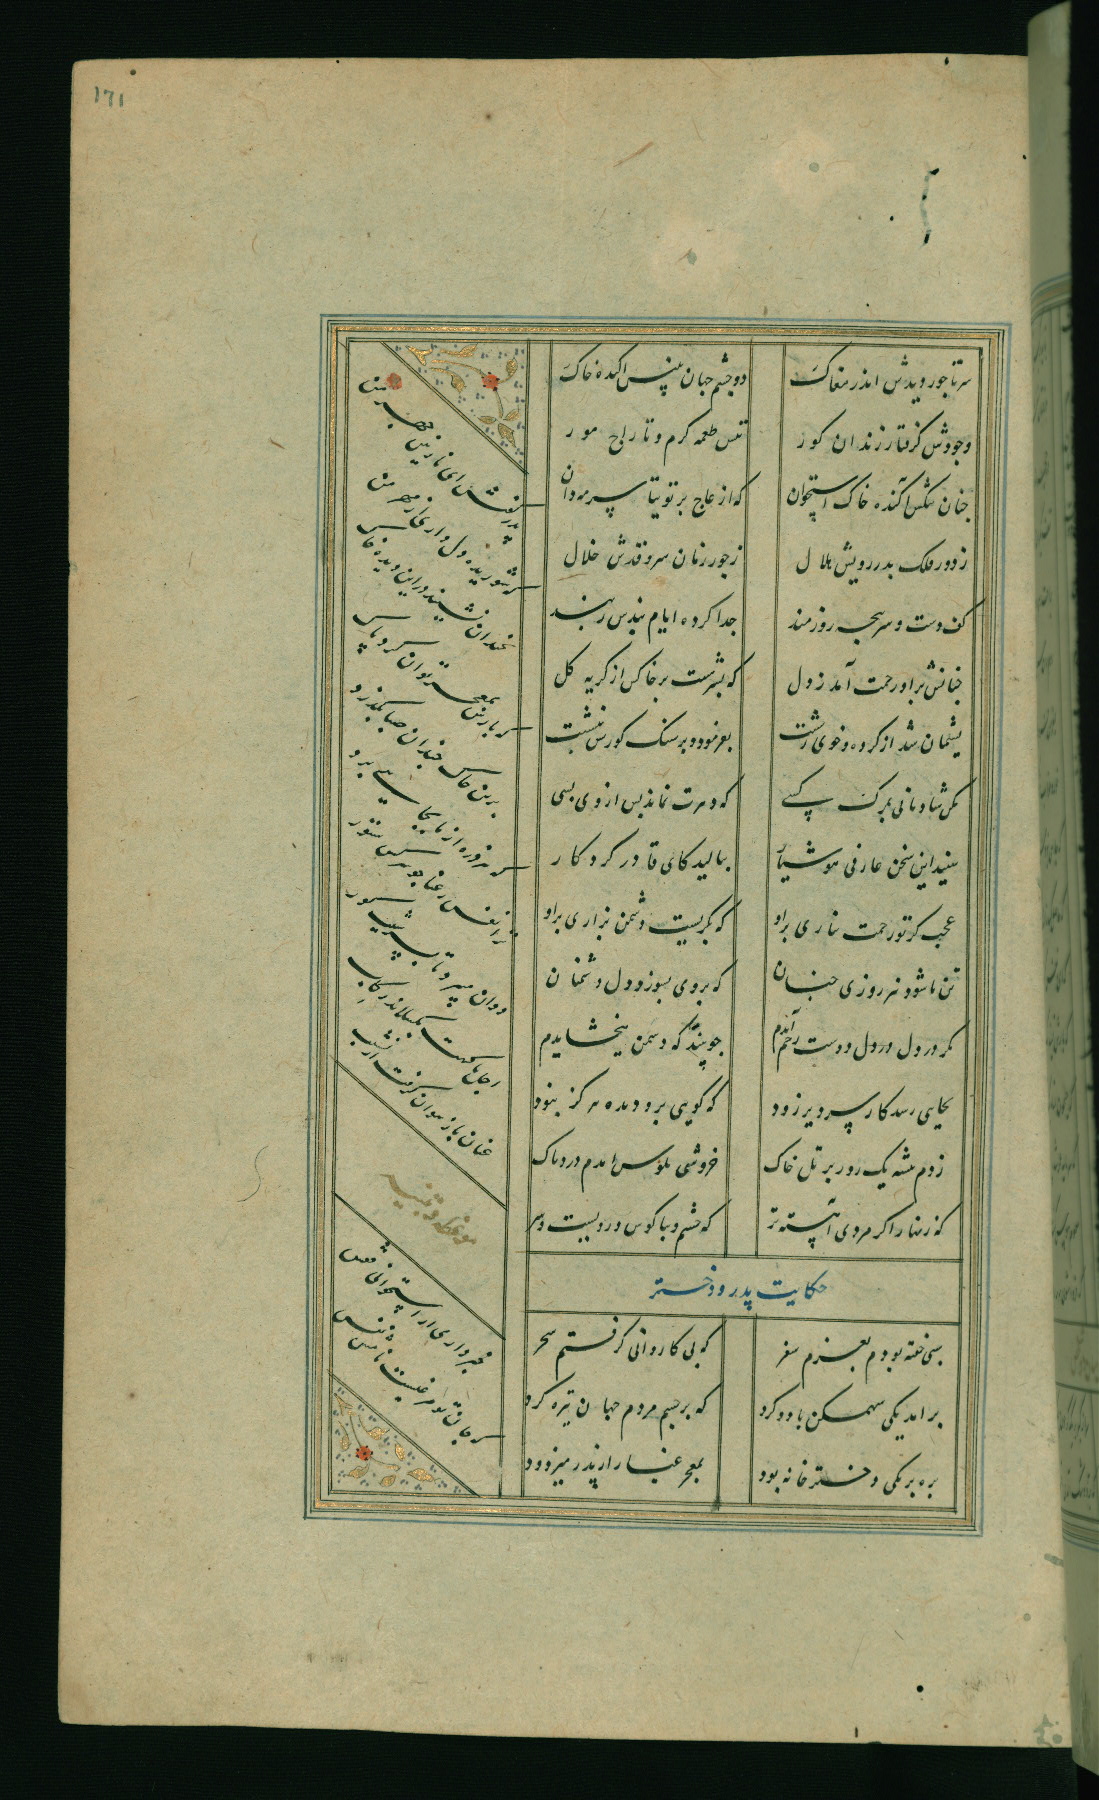 ۱۶۱
سر تاجور دیدش اندر مغاک
دو چشم جهان بینش آکنده خاک
وجودش گرفتار زندان گور
تنش طعمه کرم و تاراج مور
چنان تنگش آکنده خاک استخوان
که از عاج پر توتیا سرمه دان
ز دور فلک بدر رویش هلال
ز جور زمان سرو قدش خلال
کف دست و سرپنجه زورمند
جدا کرده ایام بندش ز بند
چنانش برو رحمت آمد ز دل
که بسرشت بر خاکش از گریه گل
پشیمان شد از کرده و خوی زشت
بفرمود و بر سنگ گورش نبشت
مکن شادمانی بمرگ کسی
که دهرت نماند پس از وی بسی
شنید این سخن عارفی هوشیار
بنالید کای قادر کردگار
عجب گر تو رحمت نیاری برو
که بگریست دشمن بزاری برو
تن ما شود نیز روزی چنان
که بر وی بسوزد دل دشمنان
مگر در دل دوست رحم آیدم
چو بیند که دشمن ببخشایدم
بجایی رسد کار سر دیر زود
که گویی برو دیده هرگز نبود
زدم تیشه یک روز بر تل خاک
بگوش آمدم دردناک
که زنهار اگر مردی آهسته تر
که چشم و بناگوش و رویست و سر
حکایت پدر و دختر
شبی خفته بودم بعزم سفر
پی کاروانی گرفتم سحر
برآمد یکی سهمگن باد و گرد
که بر چشم مردم جهان تیره کرد
بره بر یکی دختر خانه بود
بمعجر غبار از پدر میزدود
پدر گفتش ای نازنین چهر من
که شوریده دل داری از مهر من
نه چندان نشیند درین دیده خاک
که بازش بمعجر توان کرد پاک
برین خاک چندان صبا بگذرد
که هر ذره از ما بجایی برد
ترا نفس رعنا چو سرکش ستور
دوان میبرد تا بشیب گور
اجل ناگهت بگسلاند رکیب
عنان باز نتوان گرفت از نشیب
موعظه و تنبیه
خبر داری ای استخوانی قفس
که جان تو مرغیست نامش نفس